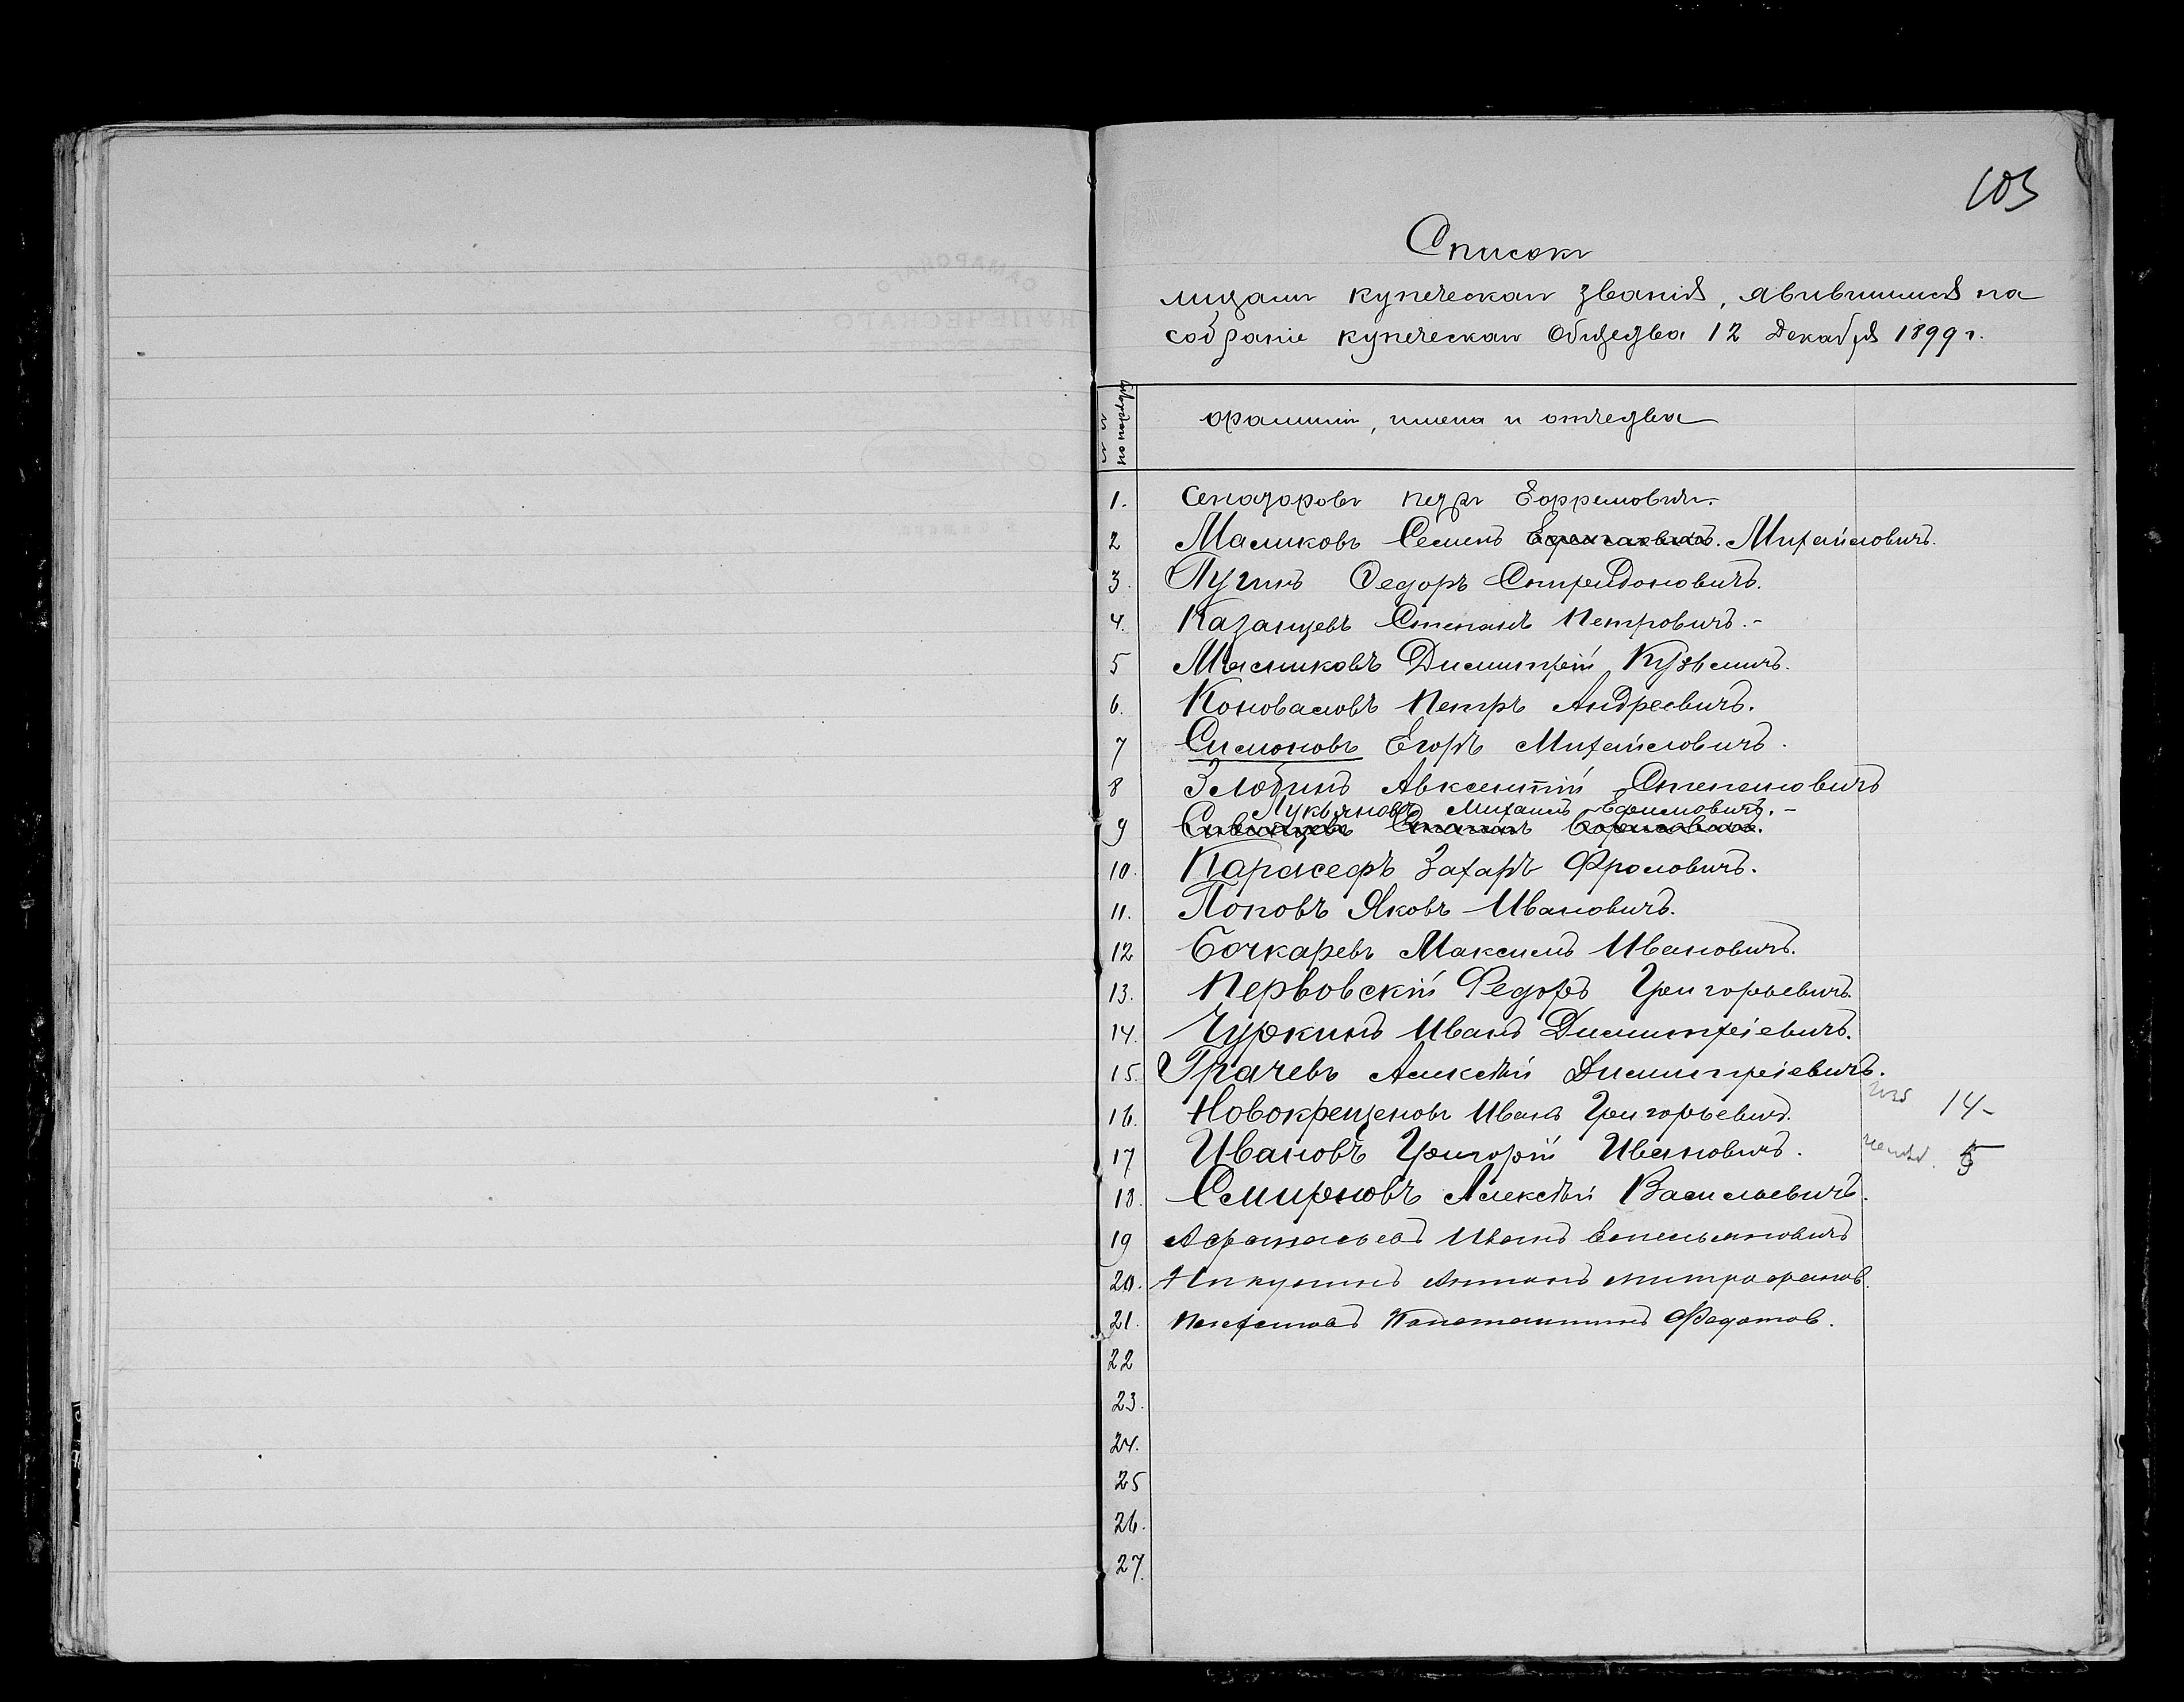 103
Списокъ
лицамъ купеческаго званія, явившимся на
собраніе купеческаго общества 12 Декабря 1899 г.
№ № по порядку
фамиліи, имена и отчества
1. Сенаторовъ Петръ Ефремовичъ.
2 Маликовъ Семенъ Михайловичъ.
3. Пугинъ Ѳедоръ Спиридоновичъ.
4. Казанцевъ Степанъ Петровичъ.-
5 Мясниковъ Димитрій Кузьмичъ.
6. Коноваловъ Петръ Андреевичъ.
7 Симоновъ Егоръ Михайловичъ.
8 Злобинъ Авксентій Степановичъ
Лукьяновъ Михаилъ Ефимовичъ.-
9
10. Карасефъ Захаръ Фроловичъ.
11. Поповъ Яковъ Ивановичъ.
12 Бочкаревъ Максимъ Ивановичъ.
13. Первовскій Федоръ Григорьевичъ.
14. Чуркинъ Иванъ Димитріевичъ.
15. Грачевъ Алексѣй Димитріевичъ.
16. Новокрещеновъ Иванъ Григорьевичъ. 14-
17 Ивановъ Григорій Ивановичъ. 5
18. Смирновъ Алексѣй Васильевичъ.
19 Афанасьевъ Иванъ Емельяновичъ
20. Никулинъ Антонъ Митрофанов.
21. Константинъ Федотов.
22
23.
24.
25
26.
27.